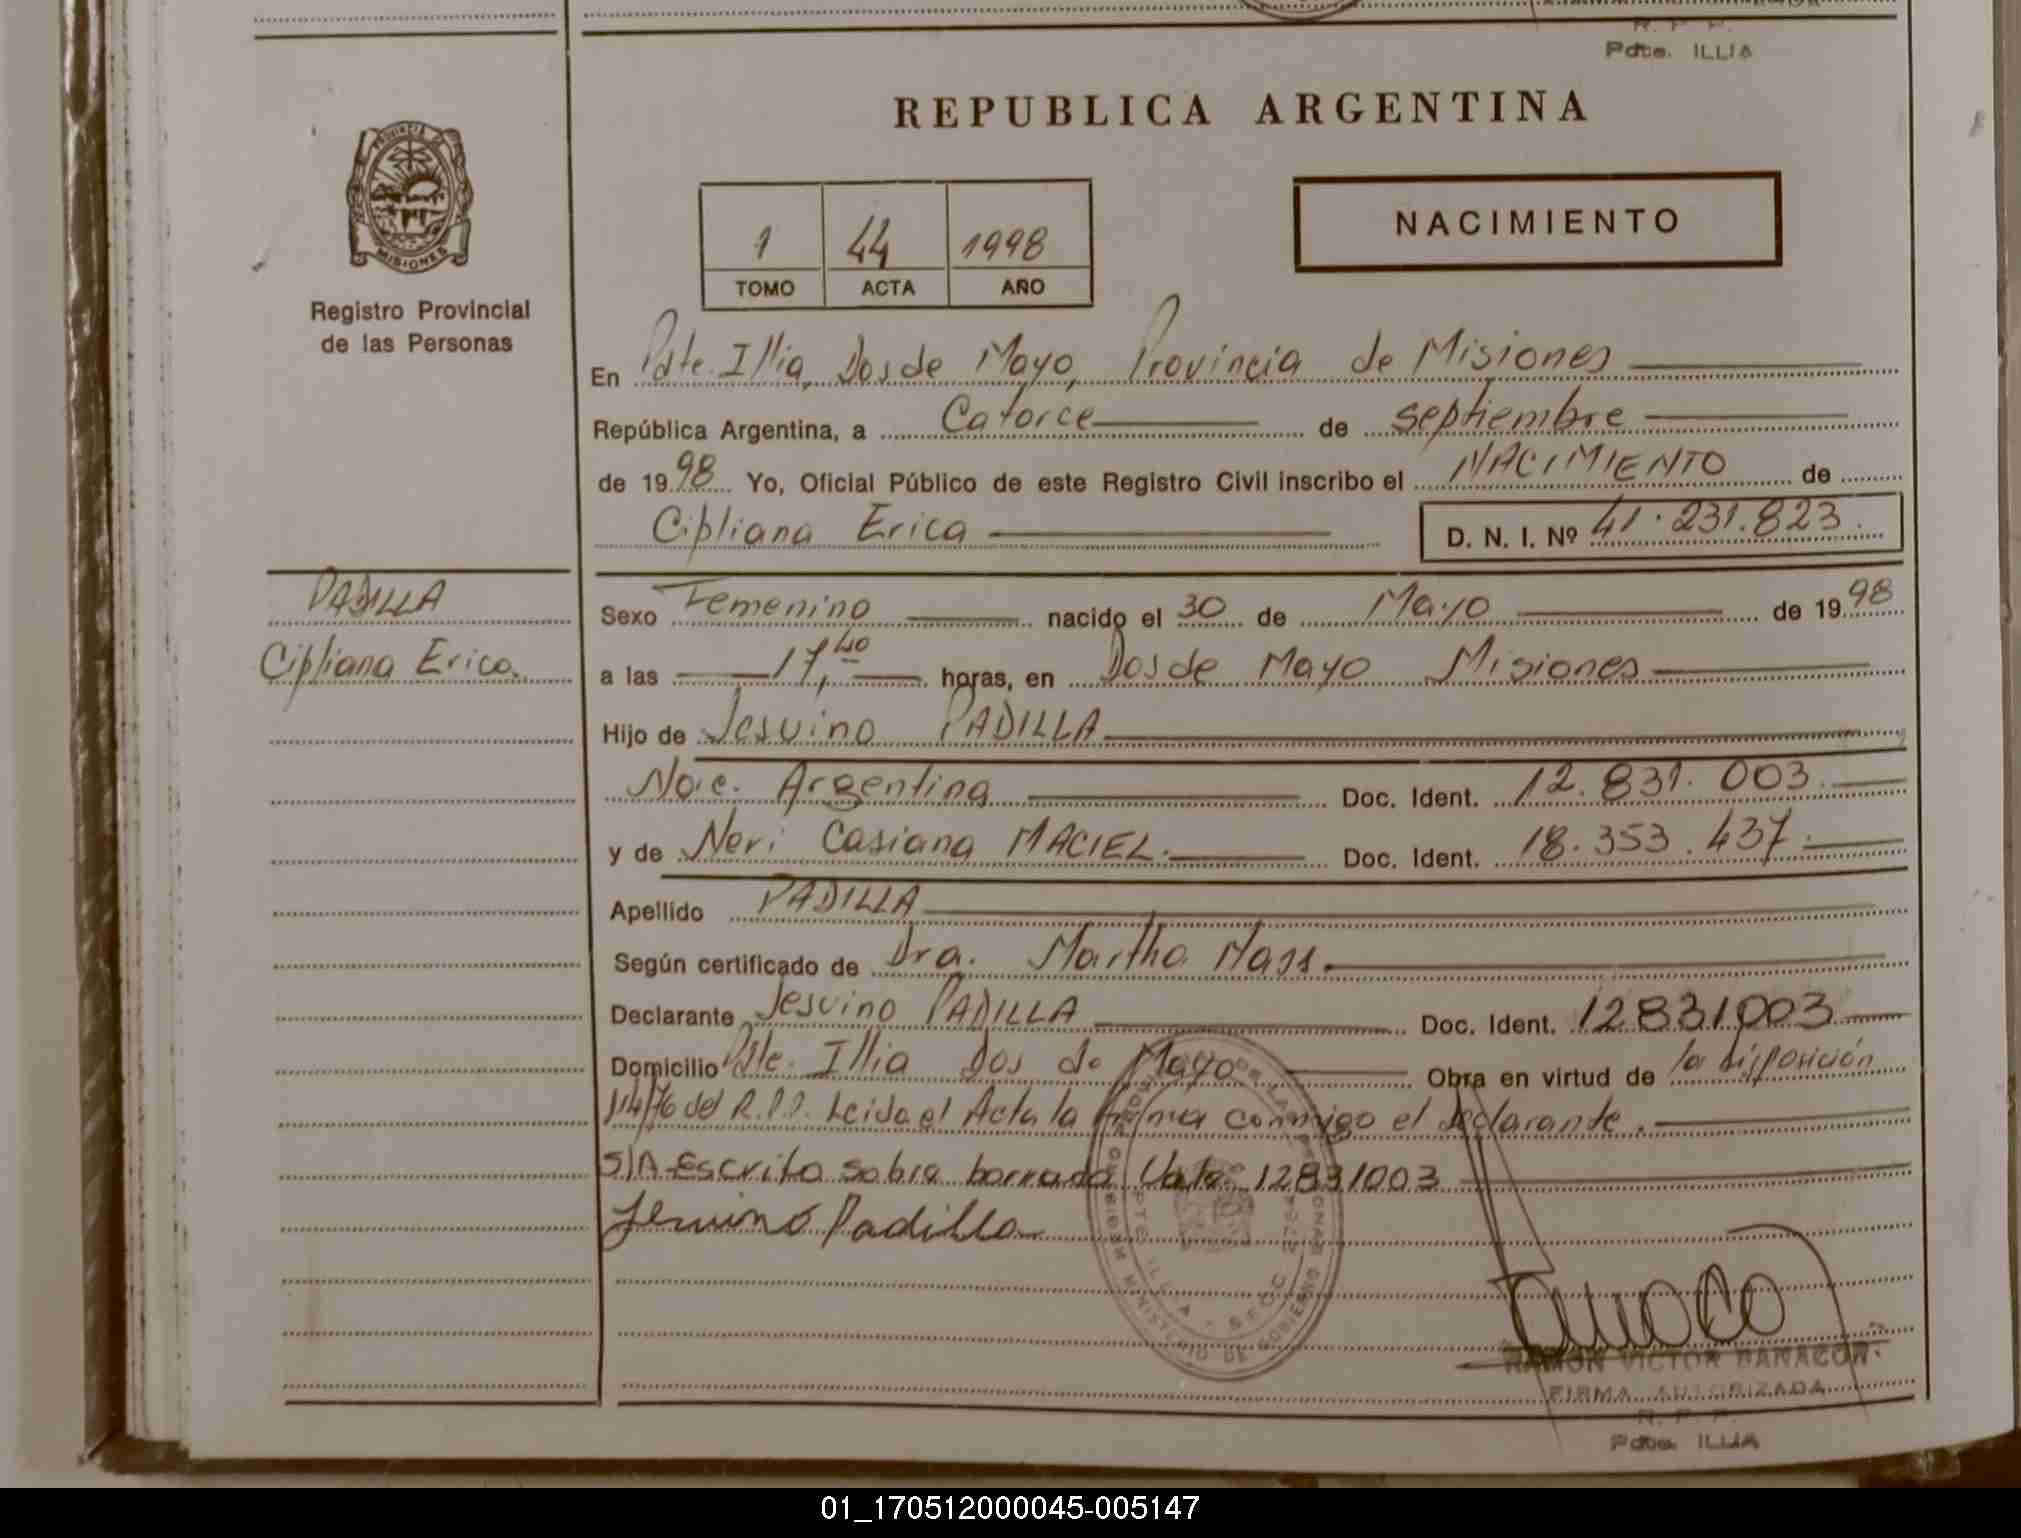 R. P. P.
Pdte. ILLIA
REPUBLICA ARGENTINA
PROVINCIA DE
MISIONES
Registro Provincial
de las Personas
1 44 1998
TOMO ACTA AÑO
NACIMIENTO
En Pdte. Illia, Dos de Mayo, Provincia de Misiones
República Argentina, a Catorce de septiembre
de 1998 Yo, Oficial Público de este Registro Civil inscribo el NACIMIENTO de
Cipliana Erica D. N. I. Nº 41.231.823.
PADILLA
Cipliana Erica.
Sexo Femenino nacido el 30 de Mayo de 1998
a las 17,40 horas, en Dos de Mayo Misiones
Hijo de Jesuino PADILLA
Nac. Argentina Doc. Ident. 12.831.003.
y de Neri Casiana MACIEL. Doc. Ident. 18.353.437.
Apellido PADILLA
Según certificado de Dra. Martha Mass.
Declarante Jesuino PADILLA Doc. Ident. 12831003
Domicilio Pdte. Illia Dos de Mayo Obra en virtud de la disposición
114/76 del R.P.P. Leida el Acta la firma conmigo el declarante.
S/A Escrito sobre borrado Vale. 12831003
Jesuino Padilla
MINISTERIO DE GOBIERNO
PTE. ILLIA
RAMON VICTOR
FIRMA AUTORIZADA
R. P. P.
Pdte. ILLIA
01_170512000045-005147